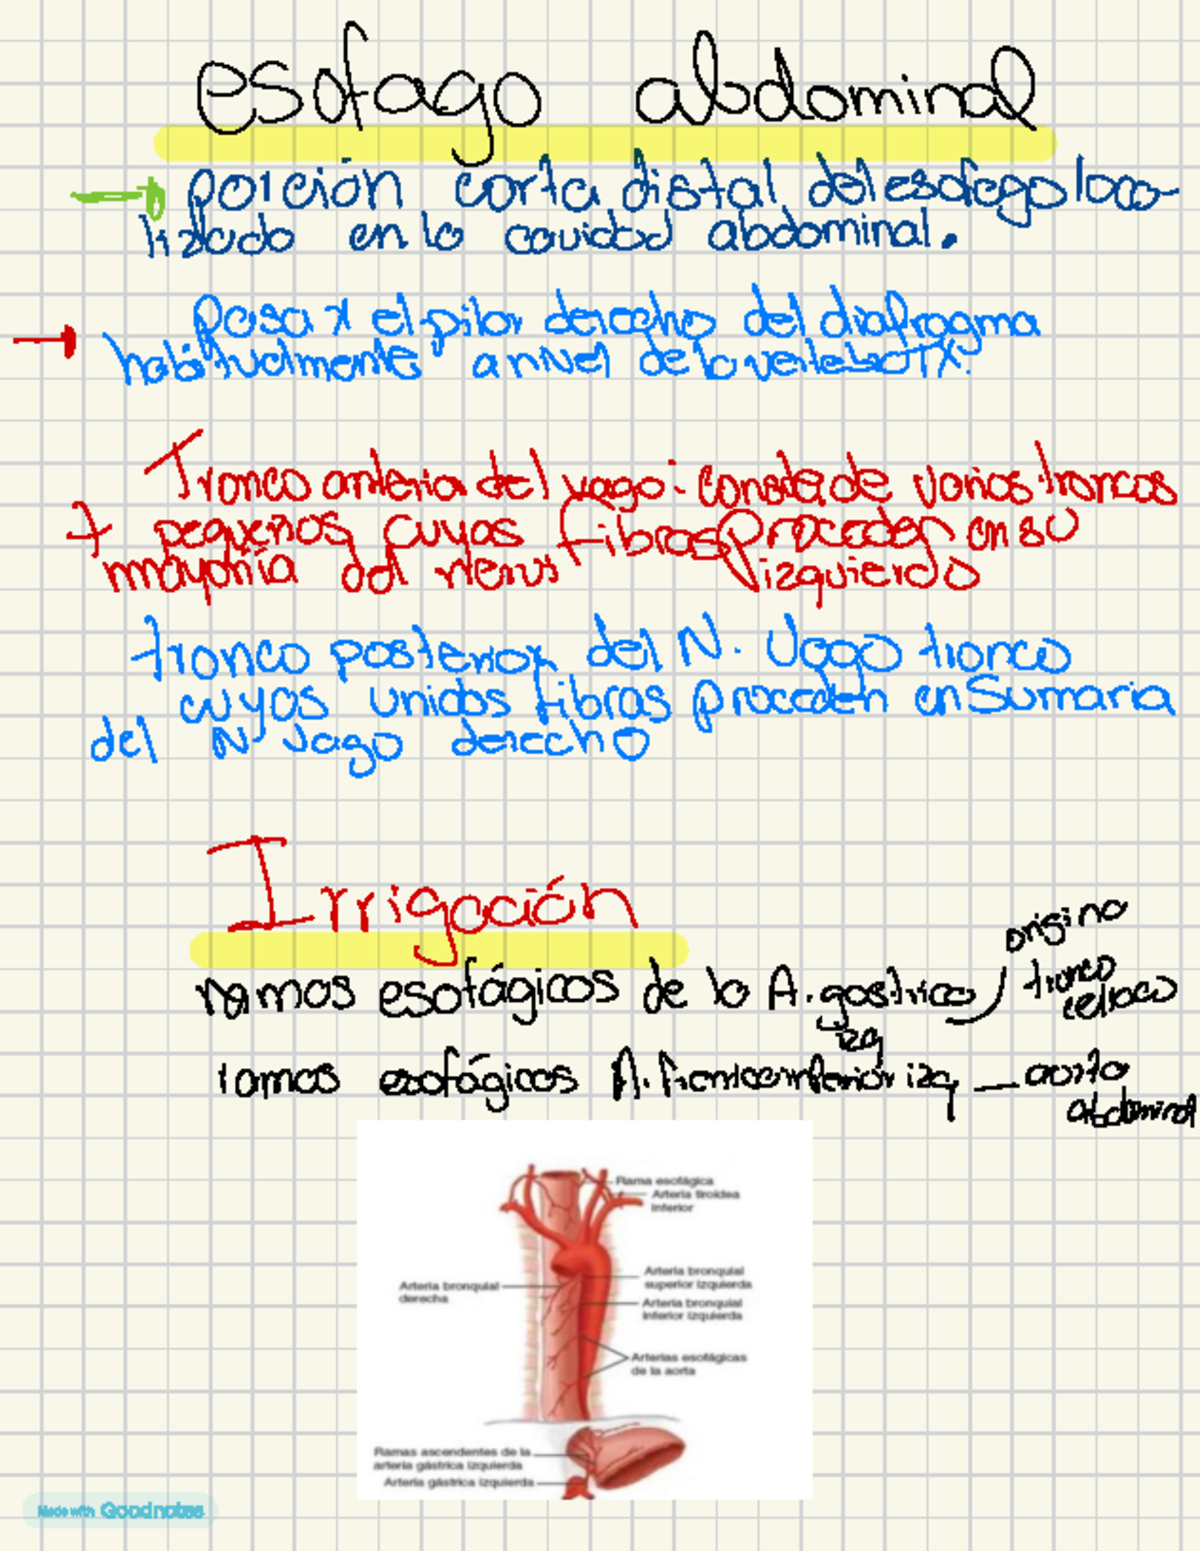 esofago abdominal
porción corta, distal del esofago loca-
lizado en la cavidad abdominal.
Pasa x el pilar derecho del diafragma
habitualmente a nivel de la vertebra TX.
Tronco anterior del vago: consta de varios troncos
pequeños cuyas fibras proceden en su
mayoria del nervs izquierdo
tronco posterior del N. Vago tronco
cuyos unidos fibras proceden en Sumaria
del N Vago derecho
Irrigación
ramos esofágicos de la A. gastrica
izq
origino
tronco
celiaco
ramos esofágicos A. frenica inferior izq — aorta
abdominal
Rama esofágica
Arteria tiroidea
inferior
Arteria bronquial
superior izquierda
Arteria bronquial
derecha
Arteria bronquial
inferior izquierda
Arterias esofágicas
de la aorta
Ramas ascendentes de la
arteria gástrica izquierda
Arteria gástrica izquierda
Made with Goodnotes